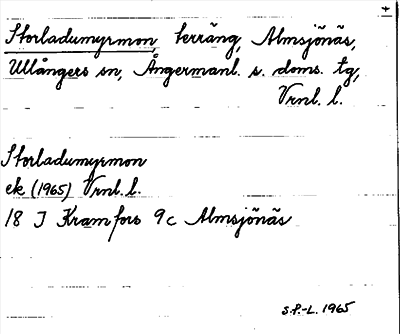 Storladumyrmon, terräng, Almsjönäs,
Ullångers sn, Ångermanl. s. doms. tg,
Vrnl. l.
Storladumyrmon
ek (1965) Vrnl. l.
18 J Kramfors 9c Almsjönäs
S.P.-L. 1965